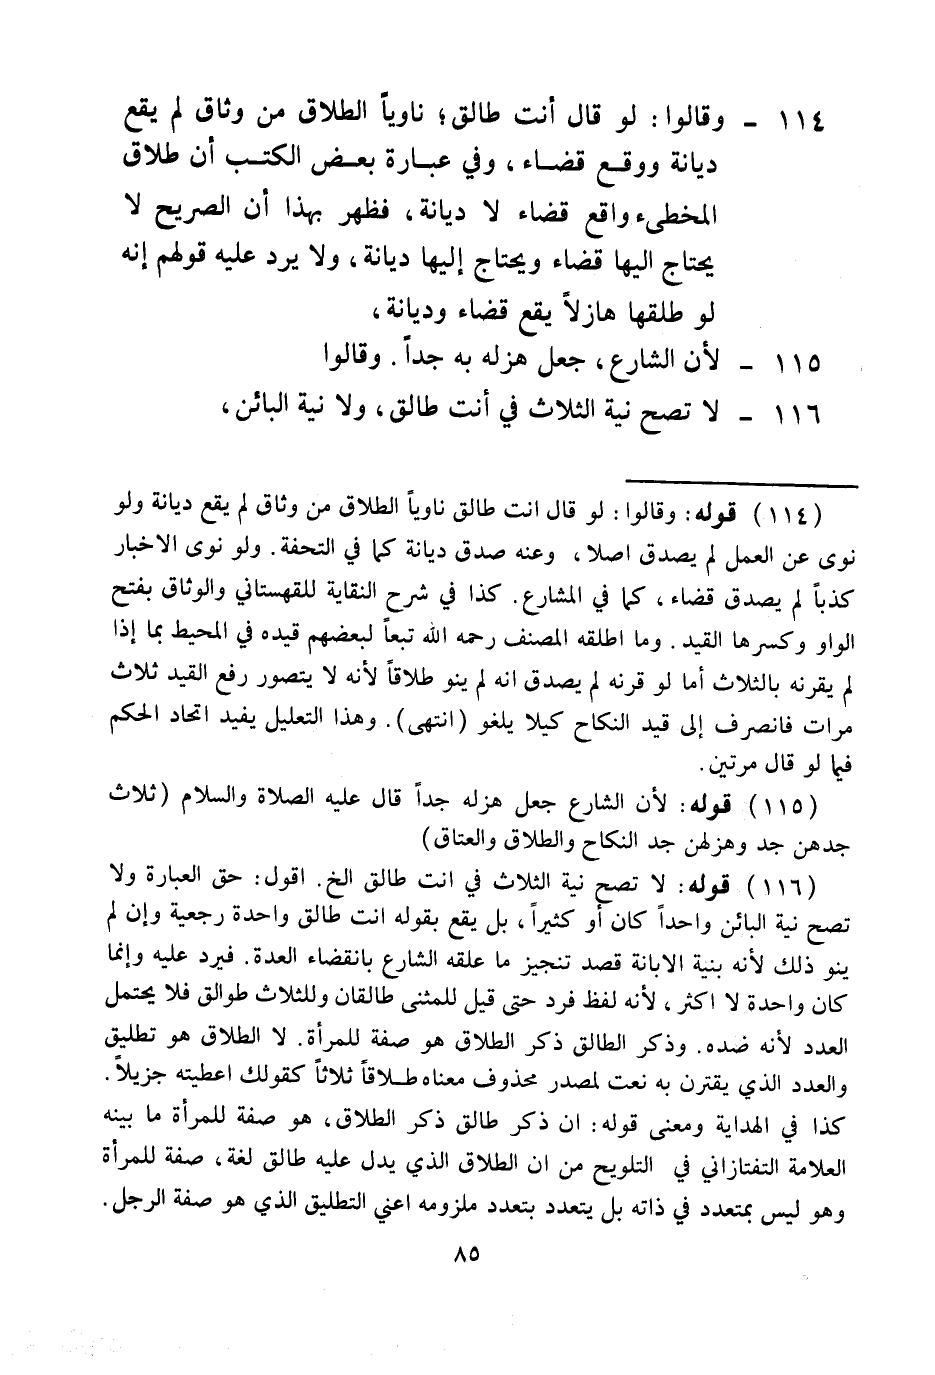 ١١٤ - وقالوا: لو قال أنت طالق؛ ناوياً الطلاق من وثاق لم يقع
ديانة ووقع قضاء، وفي عبارة بعض الكتب أن طلاق
المخطىء واقع قضاء لا ديانة، فظهر بهذا أن الصريح لا
يحتاج اليها قضاء ويحتاج إليها ديانة، ولا يرد عليه قولهم إنه
لو طلقها هازلاً يقع قضاء وديانة،
١١٥ - لأن الشارع، جعل هزله به جداً. وقالوا
١١٦ - لا تصح نية الثلاث في أنت طالق، ولا نية البائن،
(١١٤) قوله: وقالوا: لو قال انت طالق ناوياً الطلاق من وثاق لم يقع ديانة ولو
نوى عن العمل لم يصدق اصلا، وعنه صدق ديانة كما في التحفة. ولو نوى الاخبار
كذباً لم يصدق قضاء، كما في المشارع. كذا في شرح النقاية للقهستاني والوثاق بفتح
الواو وكسرها القيد. وما اطلقه المصنف رحمه الله تبعاً لبعضهم قيده في المحيط بما إذا
لم يقرنه بالثلاث أما لو قرنه لم يصدق انه لم ينو طلاقاً لأنه لا يتصور رفع القيد ثلاث
مرات فانصرف إلى قيد النكاح كيلا يلغو (انتهى). وهذا التعليل يفيد اتحاد الحكم
فيما لو قال مرتين.
(١١٥) قوله: لأن الشارع جعل هزله جداً قال عليه الصلاة والسلام (ثلاث
جدهن جد وهزلهن جد النكاح والطلاق والعتاق)
(١١٦) قوله: لا تصح نية الثلاث في انت طالق الخ. اقول: حق العبارة ولا
تصح نية البائن واحداً كان أو كثيراً، بل يقع بقوله انت طالق واحدة رجعية وإن لم
ينو ذلك لأنه بنية الابانة قصد تنجيز ما علقه الشارع بانقضاء العدة. فيرد عليه وإنما
كان واحدة لا اكثر، لأنه لفظ فرد حتى قيل للمثنى طالقان وللثلاث طوالق فلا يحتمل
العدد لأنه ضده. وذكر الطالق ذكر الطلاق هو صفة للمرأة. لا الطلاق هو تطليق
والعدد الذي يقترن به نعت لمصدر محذوف معناه طلاقاً ثلاثاً كقولك اعطيته جزيلاً.
كذا في الهداية ومعنى قوله: ان ذكر طالق ذكر الطلاق، هو صفة للمرأة ما بينه
العلامة التفتازاني في التلويح من ان الطلاق الذي يدل عليه طالق لغة، صفة للمرأة
وهو ليس بمتعدد في ذاته بل يتعدد بتعدد ملزومه اعني التطليق الذي هو صفة الرجل.
٨٥